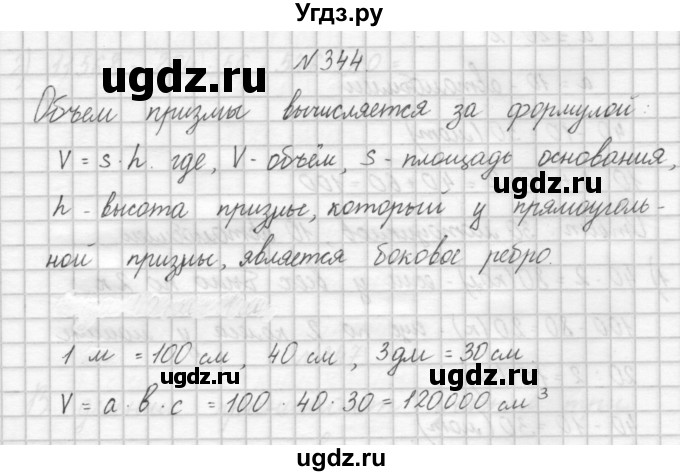 Угдз.ру
№ 344
Объем призмы вычисляется за формулой:
V = s · h. где, V - объём, s - площадь основания,
h - высота призмы, который у прямоуголь-
ной призмы, является боковое ребро.
1 м = 100 см, 40 см, 3дм = 30 см.
V = a · b · c = 100 · 40 · 30 = 120000 см³
ugdz.ru
ugdz.ru
ugdz.ru
ugdz.ru
ugdz.ru
ugdz.ru
ugdz.ru